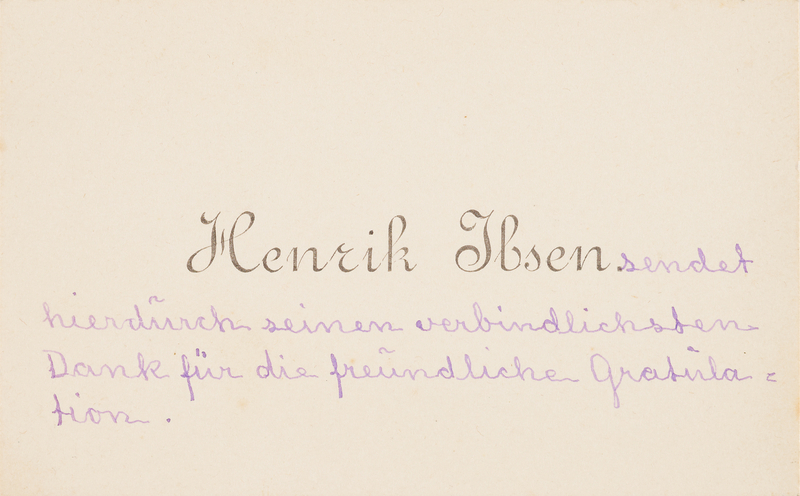 Henrik Ibsen sendet
hierdurch seinen verbindlichsten
Dank für die freundliche Gratula=
tion.